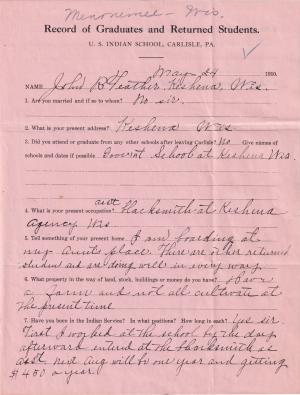 Menomonee - Wis.
Record of Graduates and Returned Students.
U. S. INDIAN SCHOOL, CARLISLE, PA.
May 24 1910.
NAME John B Feather, Keshena, Wis.
1. Are you married and if so to whom? No sir.
2. What is your present address? Keshena Wis
3. Did you attend or graduate from any other schools after leaving Carlisle? No Give names of
schools and dates if possible. Govern't School at Keshena Wis.
asst
4. What is your present occupation? Blacksmith at Keshena
Agency Wis
5. Tell something of your present home I am boarding at
my Aunts place. There are other returned
student and are doing well in every way.
6. What property in the way of land, stock, buildings or money do you have? I have
a farm and not all cultivate at
the present time.
7. Have you been in the Indian Service? In what positions? How long in each? Yes sir
First I worked at the school by the day
afterward entered at the blacksmith as
asst. next Aug will be one year and getting
$480 a year.